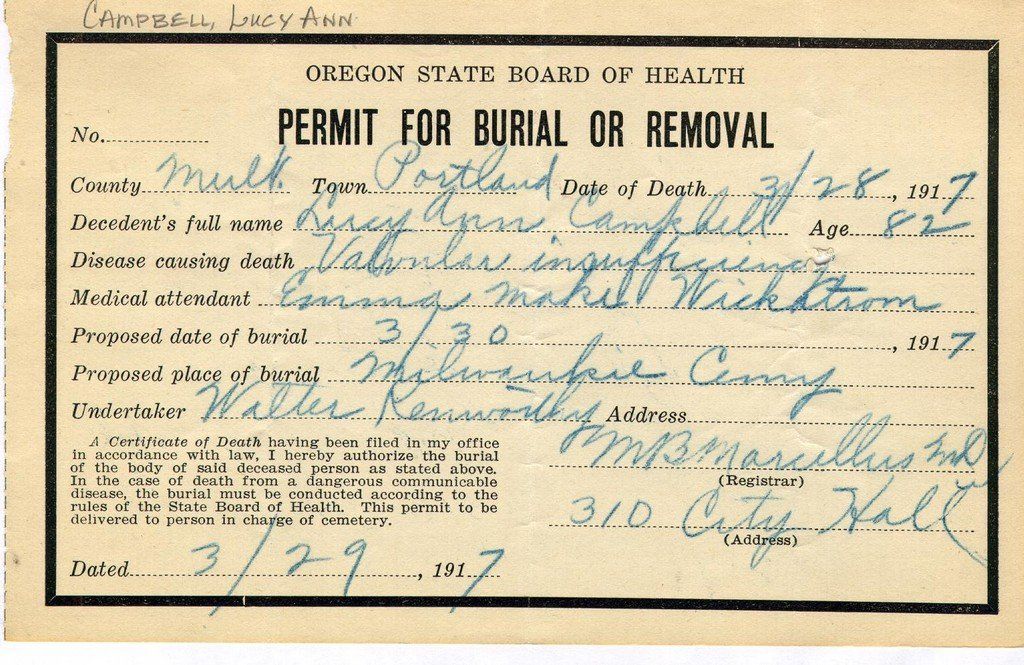 CAMPBELL, LUCY ANN
OREGON STATE BOARD OF HEALTH
PERMIT FOR BURIAL OR REMOVAL
No.
County Mult. Town Portland Date of Death 3/28, 1917
Decedent's full name Lucy Ann Campbell Age 82
Disease causing death Valvular insufficiency
Medical attendant Emma Wickstrom
Proposed date of burial 3/30, 1917
Proposed place of burial Milwaukie Cemy
Undertaker Walter Kenworthy Address
A Certificate of Death having been filed in my office
in accordance with law, I hereby authorize the burial
of the body of said deceased person as stated above.
In the case of death from a dangerous communicable
disease, the burial must be conducted according to the
rules of the State Board of Health. This permit to be
delivered to person in charge of cemetery.
Dated 3/29, 1917
MB Marcellus MD
(Registrar)
310 City Hall
(Address)